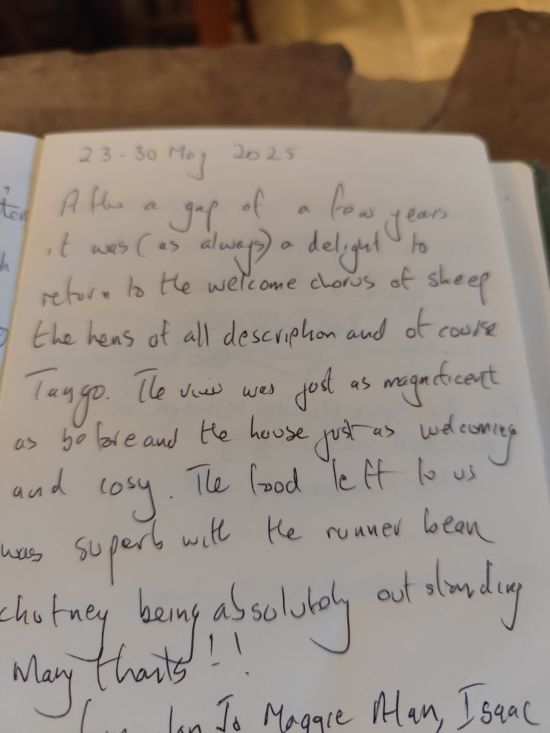 23-30 May 2025
After a gap of a few years
it was (as always) a delight to
return to the welcome chorus of sheep
the hens of all description and of course
Tango. The view was just as magnificent
as before and the house just as welcoming
and cosy. The food left to us
was superb with the runner bean
chutney being absolutely outstanding
Many thanks!!
Ian Jo Maggie Alan, Isaac